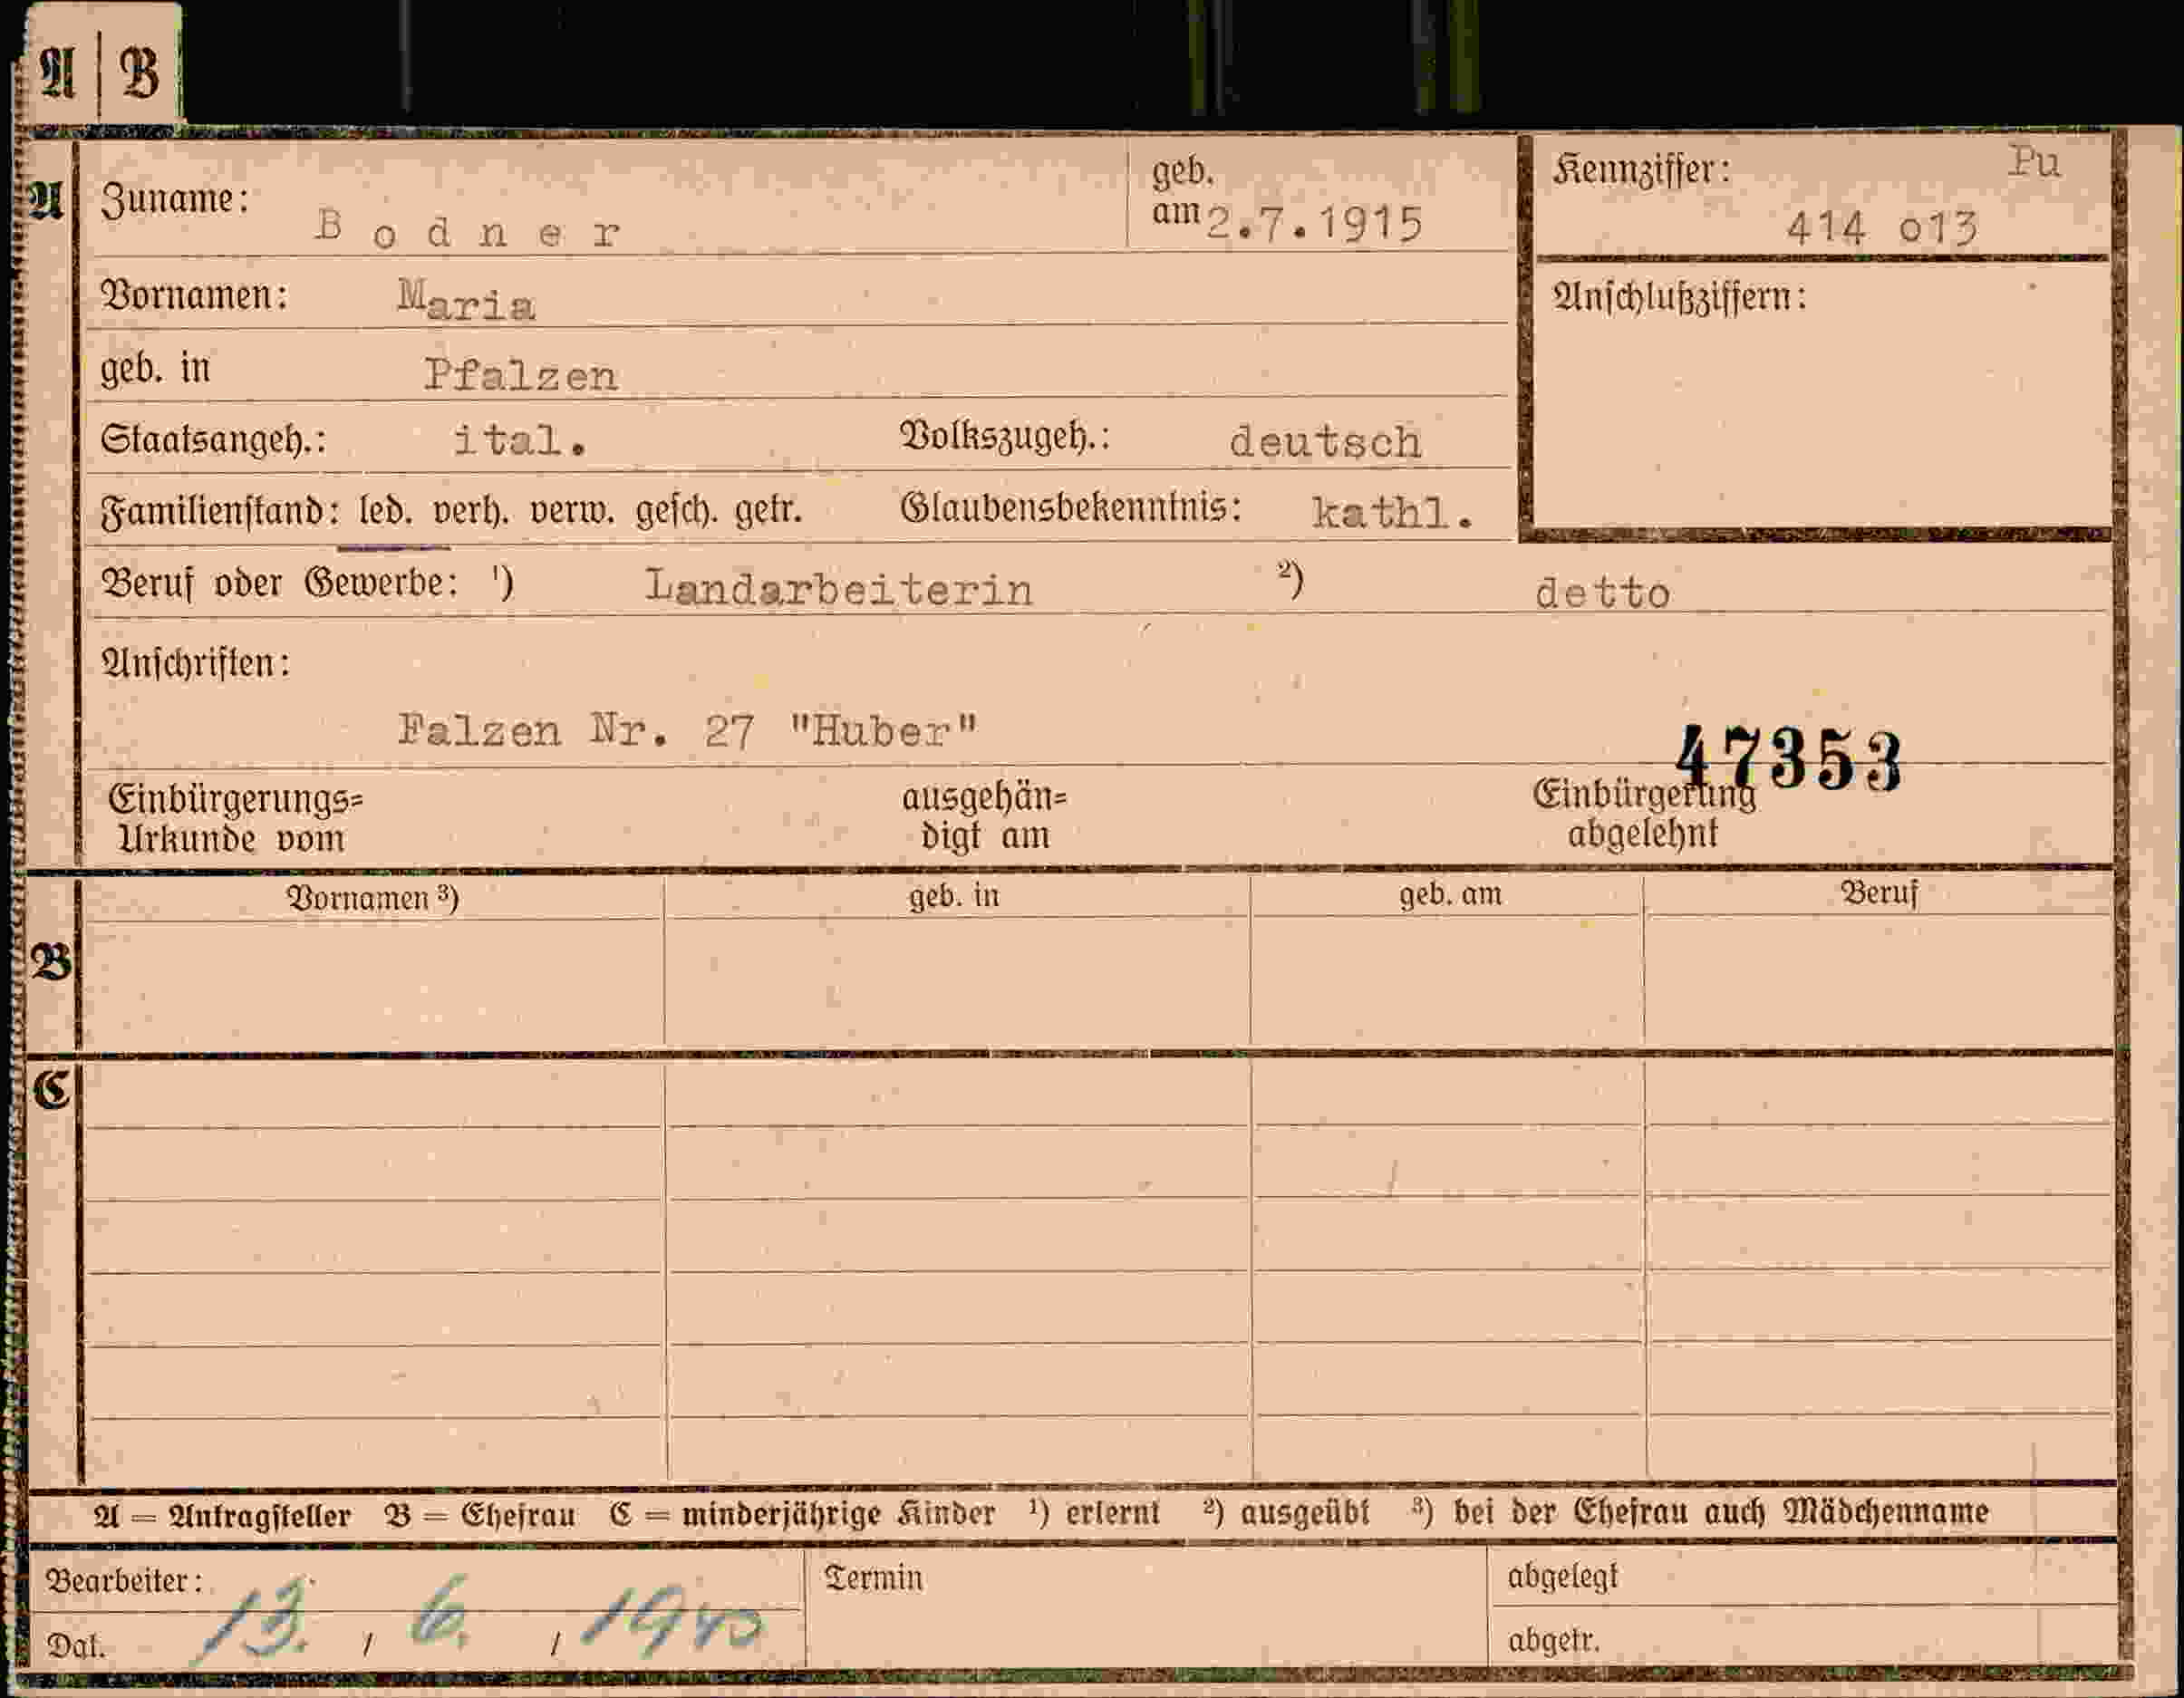 A | B
A
Zuname: Bodner
geb. am 2.7.1915
Kennziffer: Pu
414 o13
Vornamen: Maria
Anschlußziffern:
geb. in Pfalzen
Staatsangeh.: ital. Volkszugeh.: deutsch
Familienstand: led. verh. verw. gesch. getr. Glaubensbekenntnis: kathl.
Beruf oder Gewerbe: 1) Landarbeiterin 2) detto
Anschriften:
Falzen Nr. 27 "Huber"
47353
Einbürgerungs=
Urkunde vom
ausgehän=
digt am
Einbürgerung
abgelehnt
Vornamen 3) geb. in geb. am Beruf
B
C
A = Antragsteller B = Ehefrau C = minderjährige Kinder 1) erlernt 2) ausgeübt 3) bei der Ehefrau auch Mädchenname
Bearbeiter:
Dat. 13. / 6. / 1940
Termin
abgelegt
abgetr.